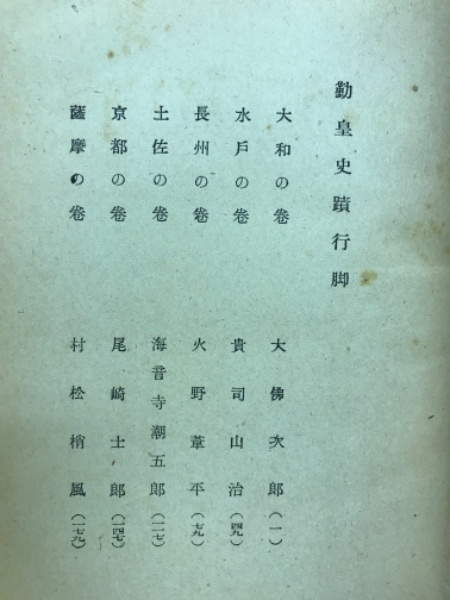 勤皇史蹟行脚
大和の巻 大佛次郎(一)
水戶の巻 貴司山治(四九)
長州の巻 火野葦平(七九)
土佐の巻 海音寺潮五郎(一一七)
京都の巻 尾崎士郎(一四七)
薩摩の巻 村松梢風(一七九)